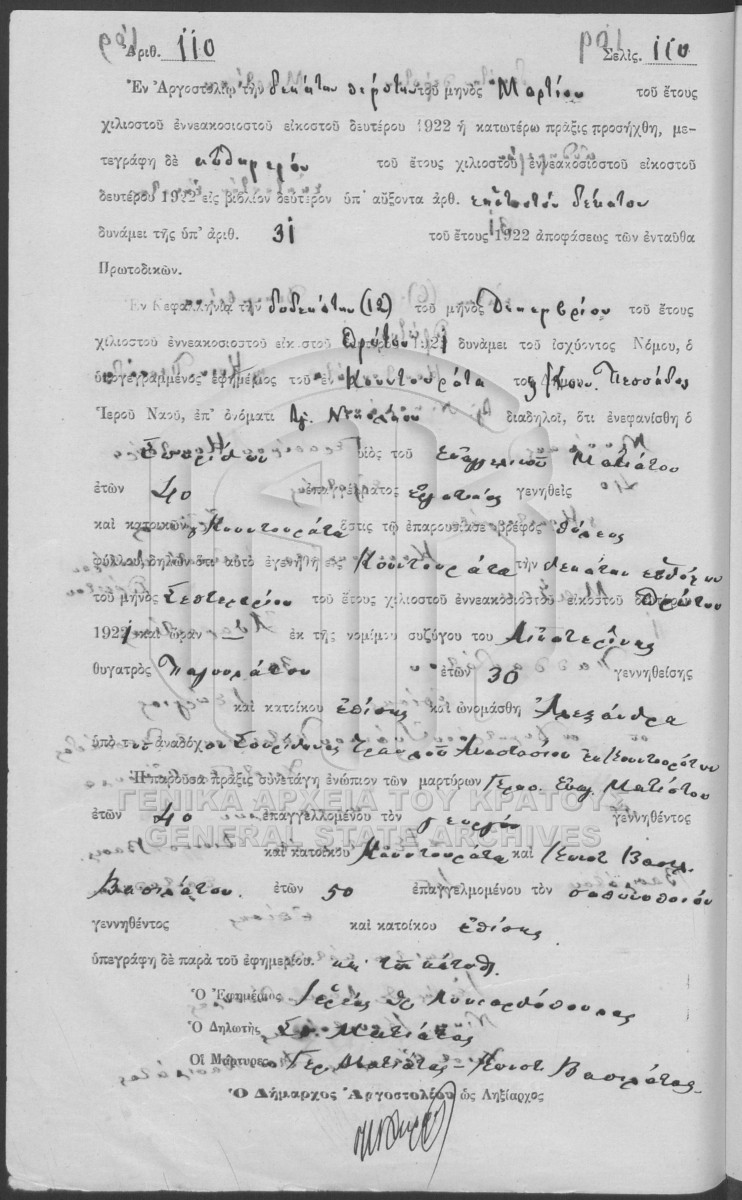 Ἀριθ. 110 Σελὶς. 110
Ἐν Ἀργοστολίῳ τὴν δεκάτην πέμπτην τοῦ μηνὸς Μαρτίου τοῦ ἔτους
χιλιοστοῦ ἐννεακοσιοστοῦ εἰκοστοῦ δευτέρου 1922 ἡ κατωτέρω πρᾶξις προσήχθη, με-
τεγράφη δὲ αὐθημερόν τοῦ ἔτους χιλιοστοῦ ἐννεακοσιοστοῦ εἰκοστοῦ
δευτέρου 1922 εἰς βιβλίον δεύτερον ὑπ' αὔξοντα ἀριθ. ἑκατοστόν δέκατον
δυνάμει τῆς ὑπ' ἀριθ. 31 τοῦ ἔτους 1922 ἀποφάσεως τῶν ἐνταῦθα
Πρωτοδικῶν.
Ἐν Κεφαλληνίᾳ τὴν δωδεκάτην (12) τοῦ μηνὸς Δεκεμβρίου τοῦ ἔτους
χιλιοστοῦ ἐννεακοσιοστοῦ εἰκοστοῦ πρώτου 1921 δυνάμει τοῦ ἰσχύοντος Νόμου, ὁ
ὑπογεγραμμένος ἐφημέριος τοῦ ἐν Κουντουράτα τοῦ Δήμου Πεσσάδος
Ἱεροῦ Ναοῦ, ἐπ' ὀνόματι Ἁγ. Νικολάου διαδηλοῖ, ὅτι ἐνεφανίσθη ὁ
Σπυρίδων υἱὸς τοῦ Εὐαγγελινοῦ Ματιάτου
ἐτῶν 40 ἐπαγγέλματος ἐργατικός γενηθεὶς
καὶ κατοικῶν Κουντουράτα ὅστις τῷ ἐπαρουσίασε βρέφος θήλεος
φύλλου, δηλῶν ὅτι αὐτὸ ἐγενήθη εἰς Κουντουράτα τὴν δεκάτην ἑβδόμην
τοῦ μηνὸς Σεπτεμβρίου τοῦ ἔτους χιλιοστοῦ ἐννεακοσιοστοῦ εἰκοστοῦ πρώτου
1921 καὶ ὥραν – ἐκ τῆς νομίμου συζύγου του Αἰκατερίνης
θυγατρὸς ἐτῶν 30 γεννηθείσης
καὶ κατοίκου ἐπίσης καὶ ὠνομάσθη Ἀλεξάνδρα
ὑπὸ τοῦ ἀναδόχου Σπυρίδωνος Ἀναστασίου ἐκ Κουντουράτων
Ἡ παροῦσα πρᾶξις συνετάγη ἐνώπιον τῶν μαρτύρων Γερασ. Εὐαγ. Ματιάτου
ΓΕΝΙΚΑ ΑΡΧΕΙΑ ΤΟΥ ΚΡΑΤΟΥΣ
ἐτῶν 40 ἐπαγγελλομένου τὸν γεωργόν γεννηθέντος
GENERAL STATE ARCHIVES
καὶ κατοίκου Κουντουράτα καὶ Κωνστ. Βασιλ.
Βασιλάτου ἐτῶν 50 ἐπαγγελμομένου τὸν σαπωνοποιόν
γεννηθέντος καὶ κατοίκου ἐπίσης
ὑπεγράφη δὲ παρὰ τοῦ ἐφημερίου.
Ὁ Ἐφημέριος Ἱερεὺς
Ὁ Δηλωτὴς Σπ. Ματιάτος
Οἱ Μάρτυρες Γερ. Ματιάτος – Κωνστ. Βασιλάτος
Ὁ Δήμαρχος Ἀργοστολίου ὡς Ληξίαρχος